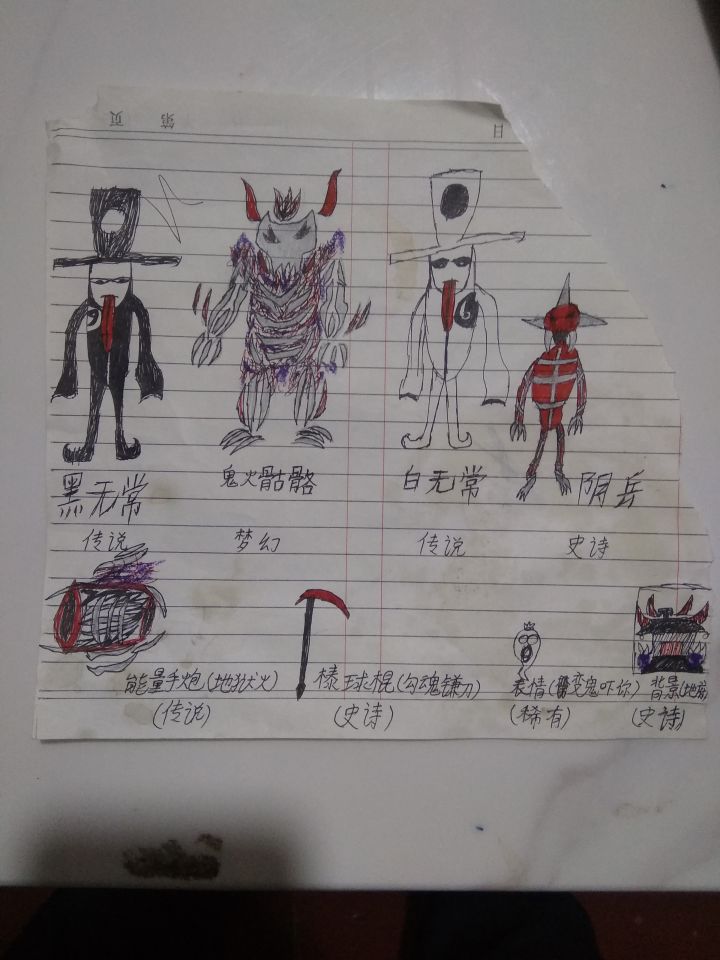 第 页
日
黑无常 鬼火骷骼 白无常 阴兵
传说 梦幻 传说 史诗
能量手炮(地狱火) 棒球棍(勾魂镰刀) 表情(变鬼吓你) 背景(地
(传说) (史诗) (稀有) (史诗)